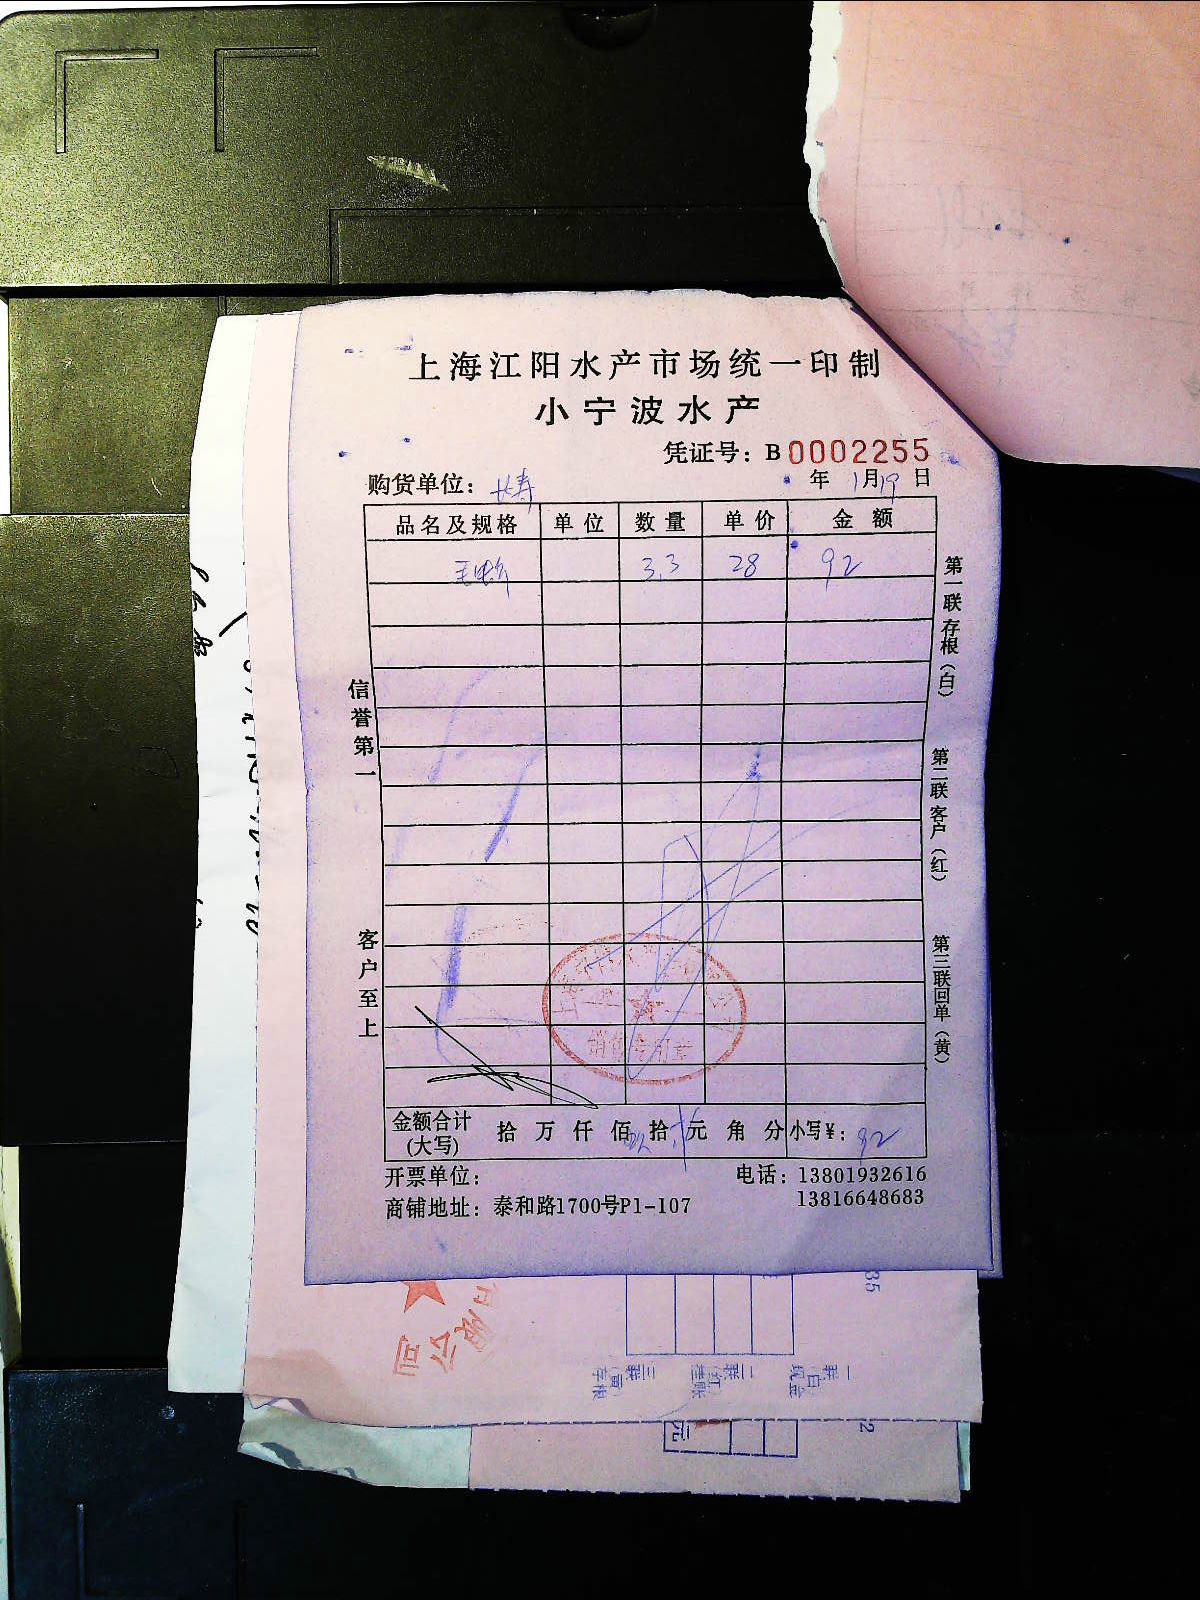 上海江阳水产市场统一印制
小宁波水产
凭证号：B 0002255
购货单位：长寿 年 1月19日
品名及规格 单位 数量 单价 金额
3.3 28 92
信誉第一
客户至上
第一联存根（白）
第二联客户（红）
第三联回单（黄）
金额合计(大写) 拾 万 仟 佰 拾 元 角 分 小写¥：92
开票单位： 电话：13801932616
13816648683
商铺地址：泰和路1700号P1-107